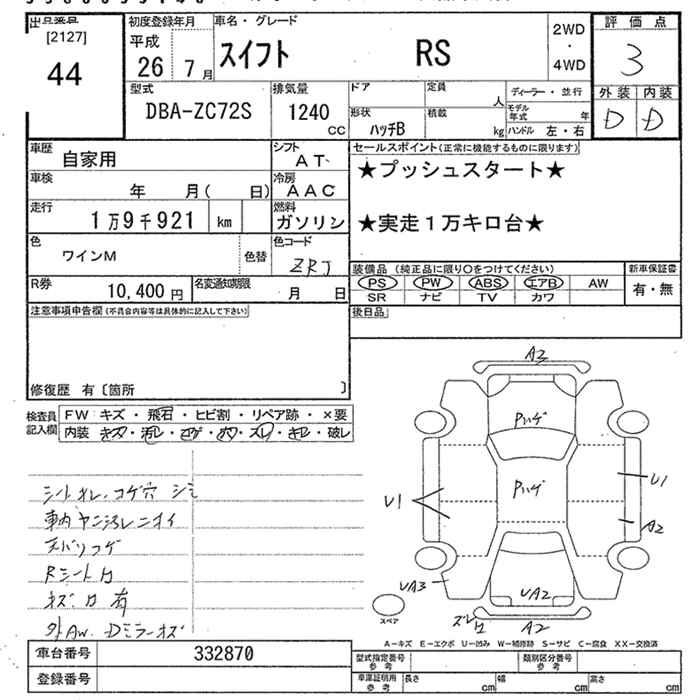 出品番号
[2127]
44
初度登録年月
平成
26 7月
車名・グレード
スイフト RS
2WD
・
4WD
評価点
3
外装 内装
D D
型式
DBA-ZC72S
排気量
1240
CC
ドア
定員
人
形状
ハッチB
積載
kg
ディーラー・並行
モデル年式 年
ハンドル 左・右
車歴
自家用
シフト
AT
車検
年 月( 日)
冷房
AAC
走行
1万9千921 km
燃料
ガソリン
色
ワインM
色替
色コード
ZRJ
R券
10,400円
名変通知期限
月 日
セールスポイント(正常に機能するものに限ります)
★プッシュスタート★
★実走1万キロ台★
装備品 (純正品に限り○をつけてください)
PS PW ABS エアB AW
SR ナビ TV カワ
新車保証書
有・無
後日品
注意事項申告欄(不具合内容等は具体的に記入して下さい)
修復歴 有〔箇所 〕
検査員記入欄
FW キズ・飛石・ヒビ割・リペア跡・×要
内装 キズ・汚レ・コゲ・穴・スレ・キレ・破レ
シートオレ、コゲ穴 シミ
車内ヤニ汚レニオイ
天バリコゲ
Rシート
有
外AW、Dミラーキズ
A2
Pハゲ
Pハゲ
U1
U1
A2
UA3
UA2
A2
スペア
A-キズ E-エクボ U-凹み W-補修跡 S-サビ C-腐食 XX-交換済
車台番号 332870
登録番号
型式指定番号 参考
類別区分番号 参考
車庫証明用 参考
長さ cm 幅 cm 高さ cm